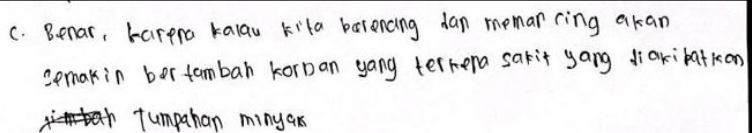 c. Benar, karena kalau kita berenang dan memancing akan
semakin bertambah korban yang terkena sakit yang diakibatkan
tumpahan minyak